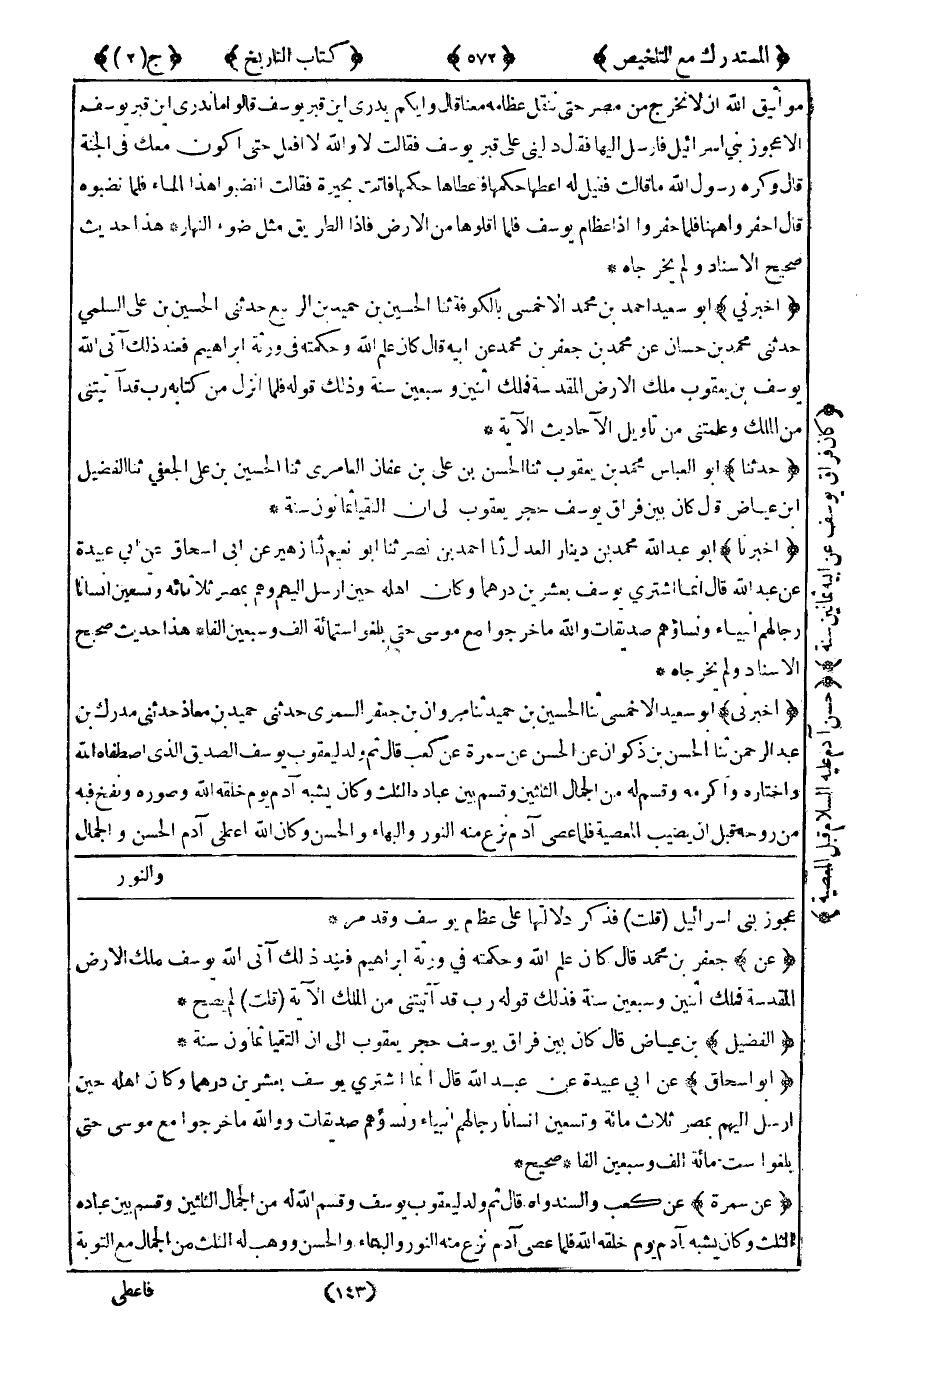 ﴿ المستدرك مع التلخيص ﴾ ﴿ ٥٧٢ ﴾ ﴿ كتاب التاريخ ﴾ ﴿ ج (٢) ﴾
مواثيق الله ان لا نخرج من مصر حتى ننقل عظامه معنا قال وايكم يدرى اين قبر يوسف قالوا ما ندرى اين قبر يوسف
الا عجوز بني اسرائيل فارسل اليها فقال دلينى على قبر يوسف فقالت لا والله لا افعل حتى اكون معك فى الجنة
قال وكره رسول الله ما قالت فقيل له اعطها حكمها فاعطاها حكمها فاتت بحيرة فقالت انضبوا هذا الماء فلما نضبوه
قال احفروا ههنا فلما حفروا اذا عظام يوسف فلما اقلوها من الارض فاذا الطريق مثل ضوء النهار * هذا حديث
صحيح الاسناد ولم يخرجاه *
﴿ اخبرني ﴾ ابو سعيد احمد بن محمد الاخمسى بالكوفة ثنا الحسين بن حميد بن الربيع حدثنى الحسين بن على السلمي
حدثنى محمد بن حسان عن محمد بن جعفر بن محمد عن ابيه قال كان علم الله وحكمته فى ورثة ابراهيم فعند ذلك آتى الله
يوسف بن يعقوب ملك الارض المقدسة فملك اثنين وسبعين سنة وذلك قوله فلما انزل من كتابه رب قد آتيتنى
من الملك وعلمتنى من تاويل الآحاديث الآية *
﴿ حدثنا ﴾ ابو العباس محمد بن يعقوب ثنا الحسن بن على بن عفان العامرى ثنا الحسين بن على الجعفي ثنا الفضيل
ابن عياض قال كان بين فراق يوسف حجر يعقوب الى ان التقيا ثمانون سنة *
﴿ اخبرنا ﴾ ابو عبد الله محمد بن دينار العدل ثنا احمد بن نصر ثنا ابو نعيم ثنا زهير عن ابى اسحاق عن ابي عبيدة
عن عبد الله قال انما اشتري يوسف بعشرين درهما وكان اهله حين ارسل اليهم وهم بمصر ثلاثمائه وتسعين انسانا
رجالهم انبياء ونساؤهم صديقات والله ما خرجوا مع موسى حتى بلغوا ستمائة الف وسبعين الفا * هذا حديث صحيح
الاسناد ولم يخرجاه *
﴿ اخبرنى ﴾ ابو سعيد الاخمسى ثنا الحسين بن حميد ثنا مروان بن جعفر السمرى حدثنى حميد بن معاذ حدثنى مدرك بن
عبد الرحمن ثنا الحسن بن ذكوان عن الحسن عن سمرة عن كعب قال ثم ولد ليعقوب يوسف الصديق الذى اصطفاه الله
واختاره واكرمه وقسم له من الجمال الثلثين وقسم بين عباده الثلث وكان يشبه آدم يوم خلقه الله وصوره ونفخ فيه
من روحه قبل ان يصيب المعصية فلما عصى آدم نزع منه النور والبهاء والحسن وكان الله اعطى آدم الحسن والجمال
والنور
﴿ كان فراق يوسف عن ابيه ثمانين سنة ﴾ ﴿ حسن آدم عليه السلام قبل المعصية ﴾
عجوز بنى اسرائيل (قلت) فذكر دلالتها على عظام يوسف وقد مر *
﴿ عن ﴾ جعفر بن محمد قال كان علم الله وحكمته في ورثة ابراهيم فعند ذلك آتى الله يوسف ملك الارض
المقدسة فملك اثنين وسبعين سنة فذلك قوله رب قد آتيتنى من الملك الآية (قلت) لم يصح *
﴿ الفضيل ﴾ بن عياض قال كان بين فراق يوسف حجر يعقوب الى ان التقيا ثمانون سنة *
﴿ ابو اسحاق ﴾ عن ابي عبيدة عن عبد الله قال انما اشتري يوسف بعشرين درهما وكان اهله حين
ارسل اليهم بمصر ثلاث مائة وتسعين انسانا رجالهم انبياء ونساؤهم صديقات ووالله ما خرجوا مع موسى حتى
بلغوا ست مائة الف وسبعين الفا * صحيح *
﴿ عن سمرة ﴾ عن كعب والسند واه قال ثم ولد ليعقوب يوسف وقسم الله له من الجمال الثلثين وقسم بين عباده
الثلث وكان يشبه آدم يوم خلقه الله فلما عصى آدم نزع منه النور والبهاء والحسن ووهب له الثلث من الجمال مع التوبة
(١٤٣) فاعطى